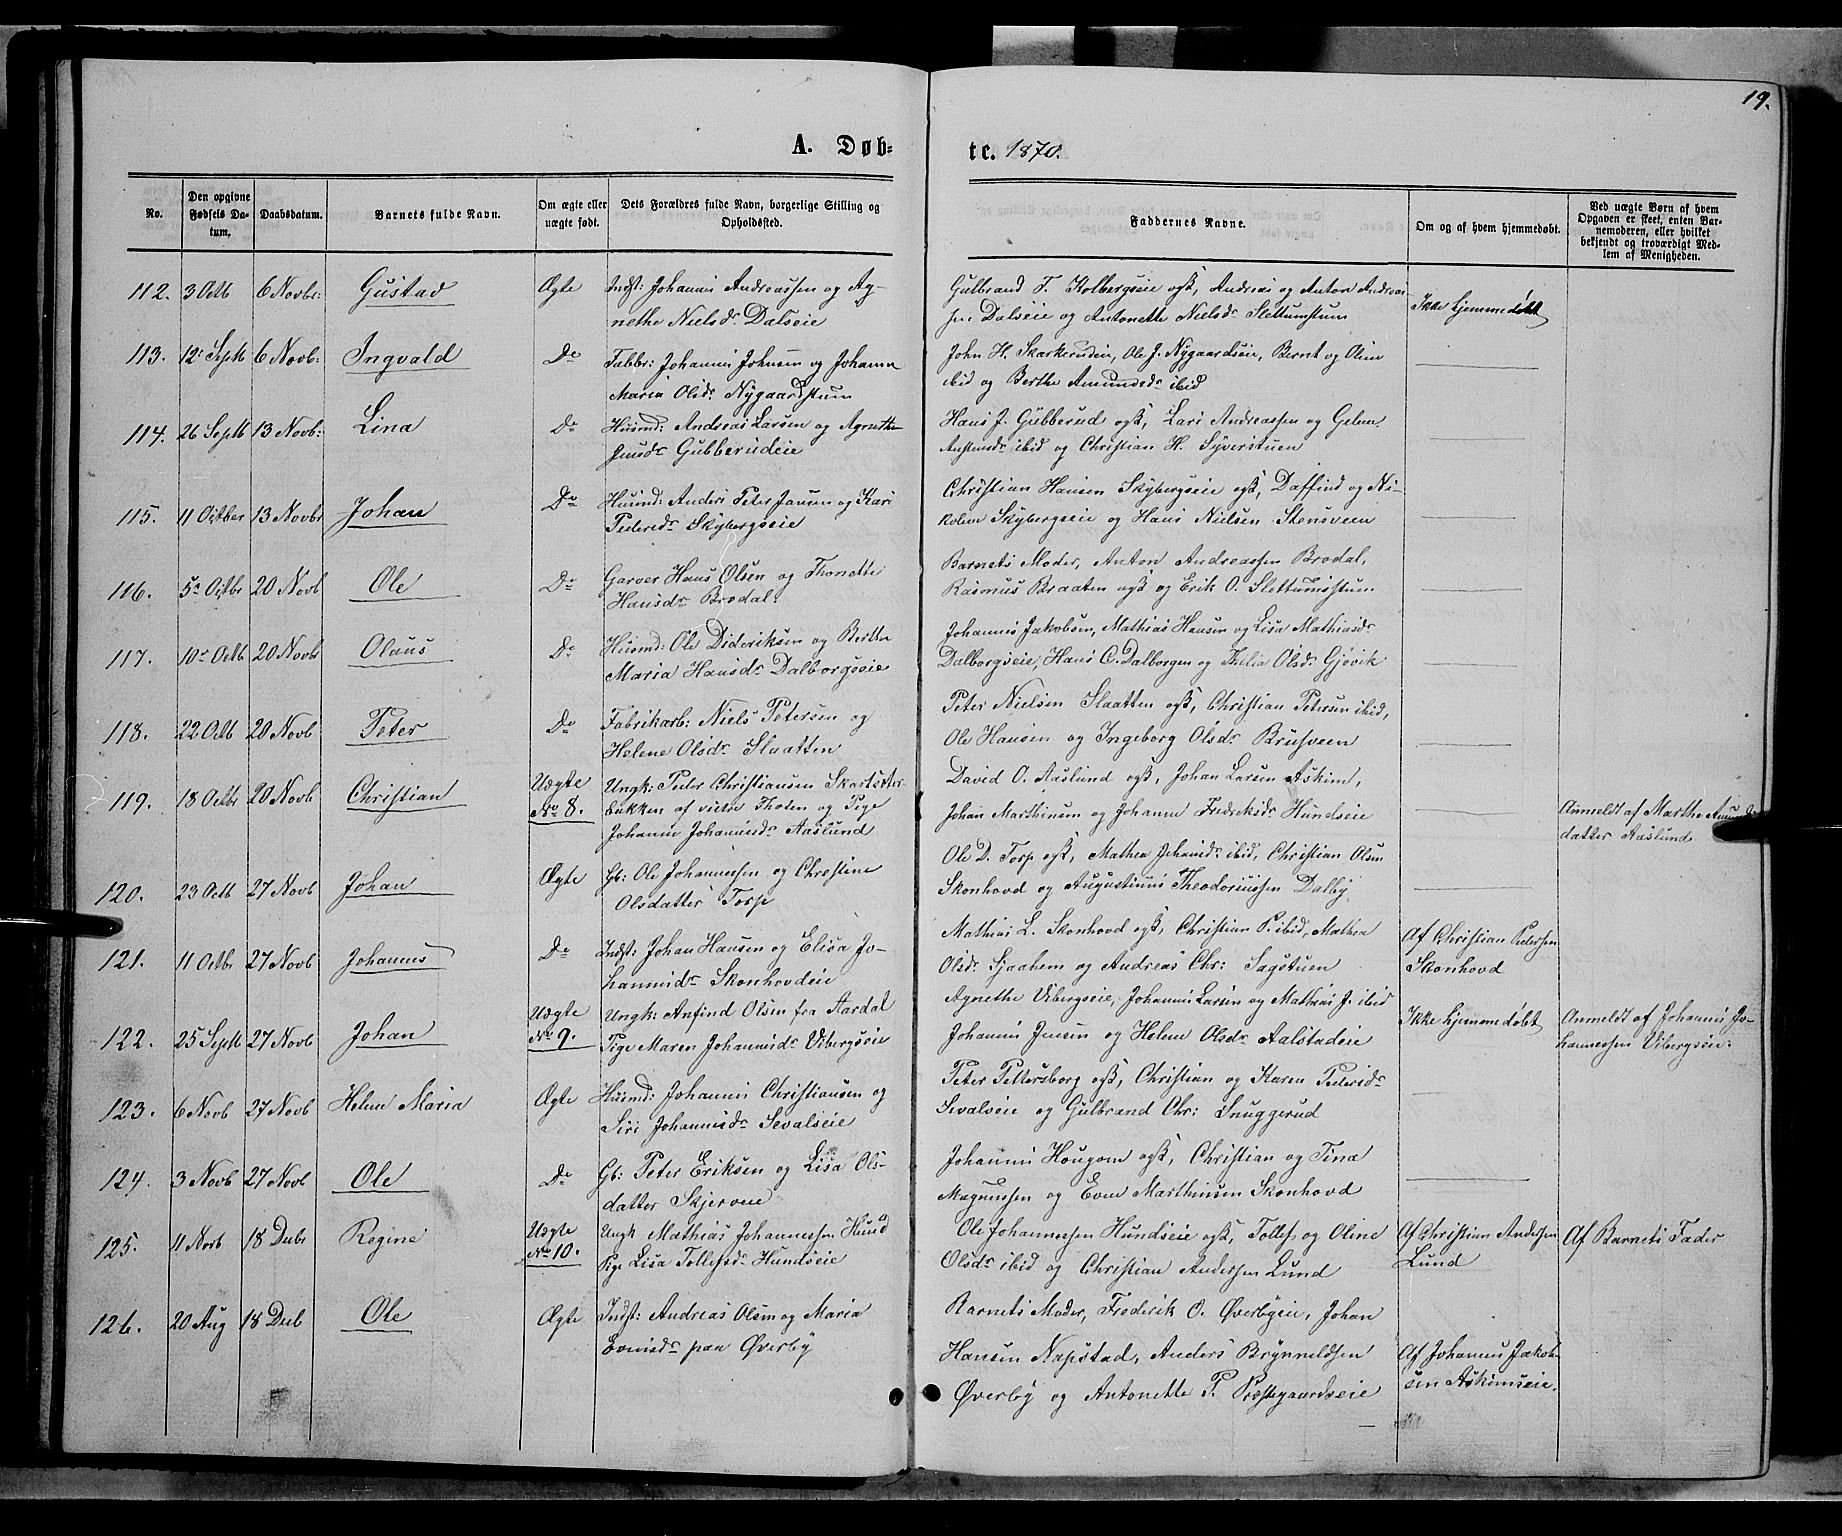 19.
A. Døb=
te. 1870.
No.
Den opgivne Fødsels Da-tum.
Daabsdatum.
Barnets fulde Navn.
Om ægte eller uægte født.
Dets Forældres fulde Navn, borgerlige Stilling og Opholdssted.
Faddernes Navne.
Om og af hvem hjemmedøbt.
Ved uægte Børn af hvem Opgaven er skeet, enten Bar-nemoderen, eller hvilket bekjendt og troværdigt Med-lem af Menigheden.
112. 3 Octb 6 Novbr: Gustav Ægte Indst: Johannis Andreassen og Ag-
nethe Nielsdr Dalseie
Gulbrand T. Kolbergseie ogsk, Andreas og Anton Andreas
sen Dalseie og Antonette Nielsdr Slettumstuen
Ikke hjemmedøbt
113. 12' Septb 6 Novb: Ingvald Do Fabbr: Johannis Johnsen og Johanne
Maria Olsdr Nygaardstuen
John H. Skarkerudeie, Ole J. Nygaardseie, Bernt og Oline
ibid og Berthe Amundsdr ibid
114. 26 Septb 13 Novb: Lina Do Husmd: Andreas Larsen og Agnethe
Jensdr Gubberudeie
Hans J. Gubberud ogsk, Lars Andreassen og
ibid og Christian H. Syverstuen
115. 11 Octber 13 Novbr Johan Do Husmd: Anders Peter Jansen og Kari
Pedersdr Skybergseie
Christian Hansen Skybergseie ogsk, Daffind og Ni-
koline Skybergseie og Hans Nielsen Stensveen
116. 5' Octbr 20 Novb Ole Do Garver Hans Olsen og Thonette
Hansdr Brodal.
Barnets Moder, Anton Andreassen Brodal,
Rasmus Braaten ogsk og Erik O. Slettumsstuen
117. 10' Octb 20 Novbr Olaus Do Husmd: Ole Dideriksen og Berthe
Maria Hansdr Dalborgseie
Johannis Jakobsen, Mathias Hansen og Lisa Mathiasdr
Dalborgseie, Hans C. Dalborgen og Thilie Olsdr Gjøvik
118. 22 Octb 20 Novb Peter Do Fabrikarb: Niels Petersen og
Helene Olsdr Slaatten
Peter Nielsen Slaatten ogsk, Christian Petersen ibid,
Ole Hansen og Ingeborg Olsdr Brusveen
119. 18 Octbr 20 Novb Christian Uægte
No 8.
Ungk: Peder Christiansen Skartseter-
bakken af vestre Thoten og Pige
Johanne Johannesdr Aaslund
David O. Aaslund ogsk, Johan Larsen Askim,
Johan Marthinsen og Johanne Fredriksdr Hundseie
Anmeldt af Marthe
datter Aaslund
120. 23 Octb 27 Novb Johan Ægte Gb: Ole Johannessen og Christine
Olsdatter Torp
Ole D. Torp ogsk, Mathea Johansdr ibid, Christian Olsen
Skonhovd og Augustinus Theodoriussen Dalby
121. 11 Octbr 27 Novb Johannes Do Indst: Johan Hansen og Elisa Jo-
hannisdr Skonhovdeie
Mathias L. Skonhovd ogsk, Christian P. ibid, Mathea
Olsdr Sjaahem og Andreas Chr: Sagstuen
Af Christian Pedersen
Skonhovd
122. 25 Septb 27 Novb Johan Uægte
No 9.
Ungk: Anfind Olsen fra Aardal
Pige Maren Johannesdr Vibergseie
Agnethe Vibergseie, Johannis Larsen og Mathias J. ibid
Johannis Jensen og Helene Olsdr Aalstadeie
Ikke hjemmedøbt
Anmeldt af Johannis Jo-
hannessen Vibergseie.
123. 6 Novb 27 Novb Helene Maria Ægte Husmd: Johannis Christiansen og
Siri Johannisdr Sevalseie
Peter Pettersborg ogsk, Christian og Karen Pedersdr
Sevalseie og Gulbrand Chr: Snuggerud
124. 3 Novb 27 Novb Ole Do Gb: Peter Eriksen og Lisa Ols-
datter Skjerven
Johannis Hougom ogsk, Christian og Tina
Magnussen og Even Marthinsen Skonhovd
125. 11 Novb 18 Decbr Regine Uægte
No 10.
Ungk Mathias Johannessen Hund
Pige Lisa Tollefsdr Hundseie
Ole Johannessen Hundseie ogsk, Tollef og Oline
Olsdr ibid og Christian Andersen Lund
Af Christian Andersen
Lund
Af Barnets Fader
126. 20 Aug 18 Decb Ole Ægte Indst: Andreas Olsen og Maria
Evensdr paa Øverby
Barnets Moder, Frederik O. Øverbyeie, Johan
Hansen Napstad, Anders Brynnildsen
Øverby og Antonette P. Præstegaardseie
Af Johannis Jakob-
sen Askimseie.